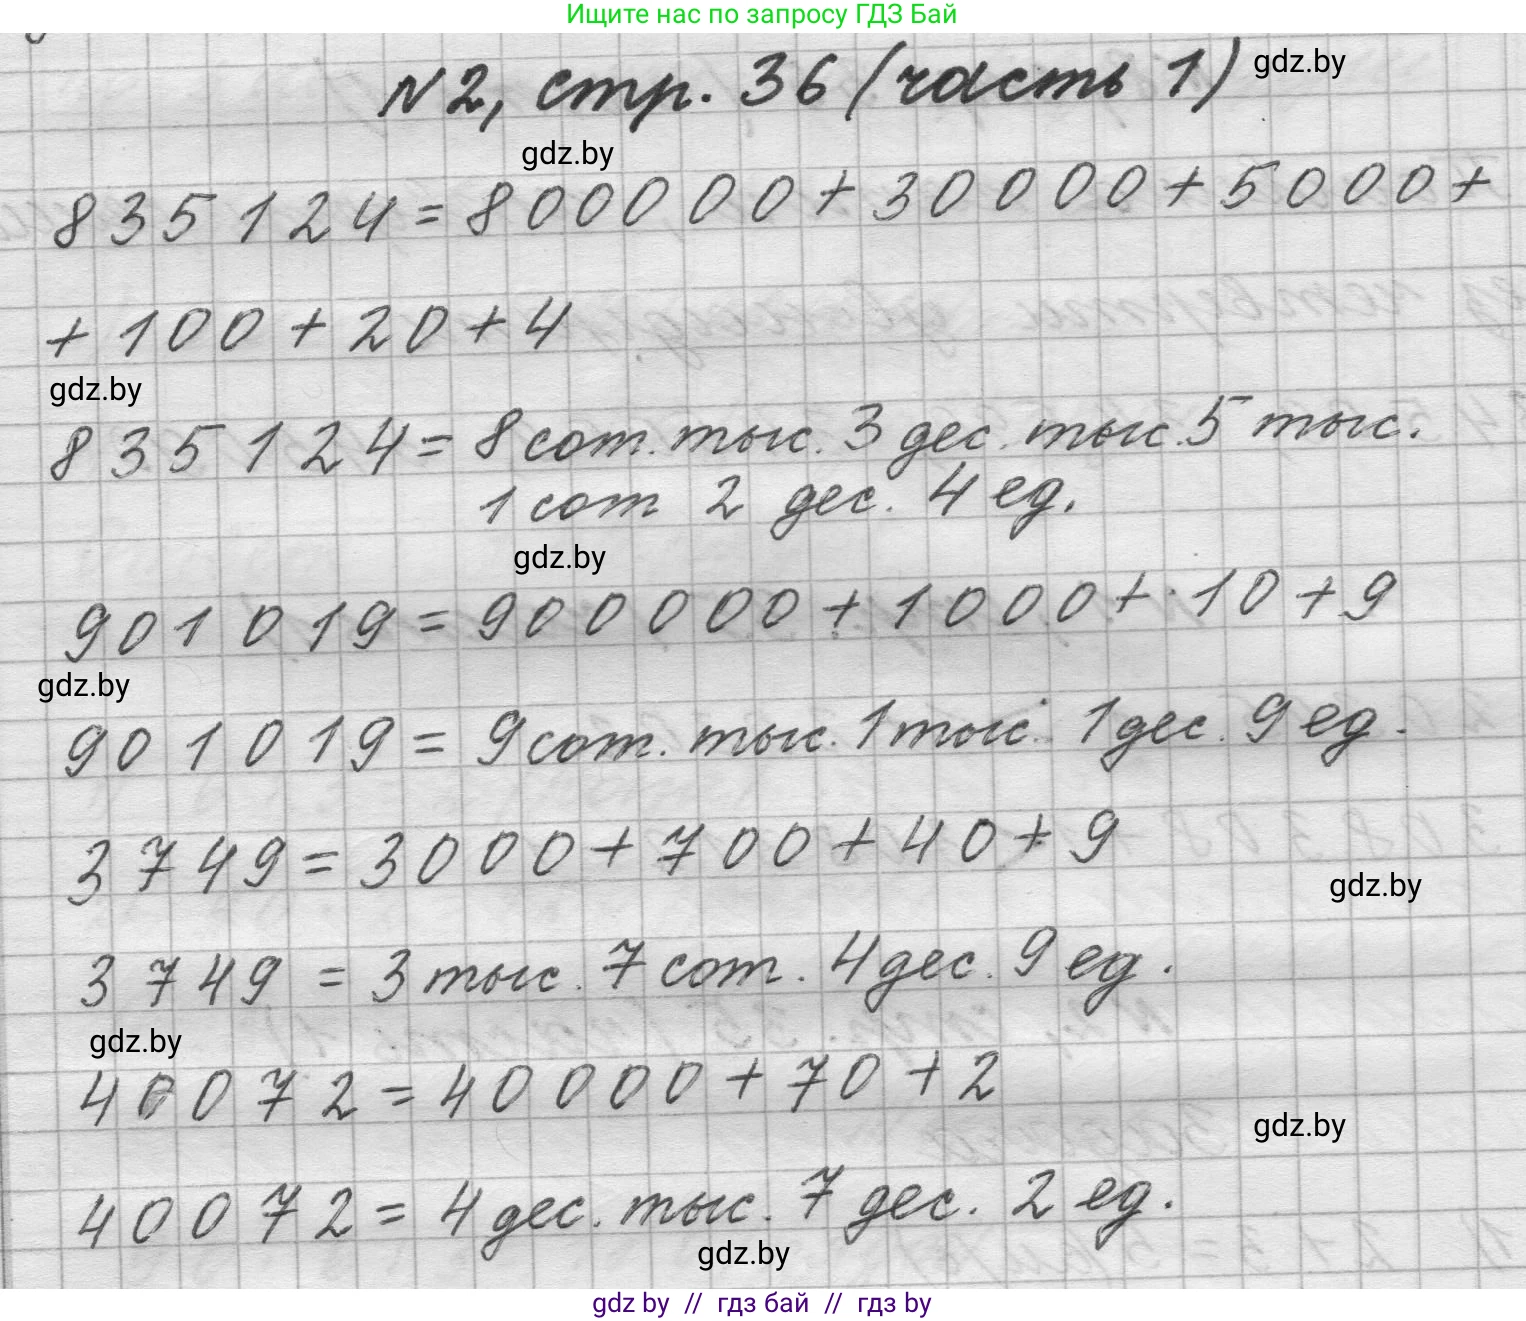 Ищите нас по запросу ГДЗ Бай
N2, стр. 36 (часть 1)
gdz.by
gdz.by
835 124 = 800 000 + 30 000 + 5000 +
+ 100 + 20 + 4
gdz.by
835 124 = 8 сот. тыс. 3 дес. тыс. 5 тыс.
1 сот 2 дес. 4 ед.
gdz.by
901 019 = 900 000 + 1000 + 10 + 9
gdz.by
901 019 = 9 сот. тыс. 1 тыс. 1 дес. 9 ед.
3749 = 3000 + 700 + 40 + 9
gdz.by
3749 = 3 тыс. 7 сот. 4 дес. 9 ед.
gdz.by
40072 = 40000 + 70 + 2
gdz.by
40072 = 4 дес. тыс. 7 дес. 2 ед.
gdz.by
gdz by // гдз бай // гдз by